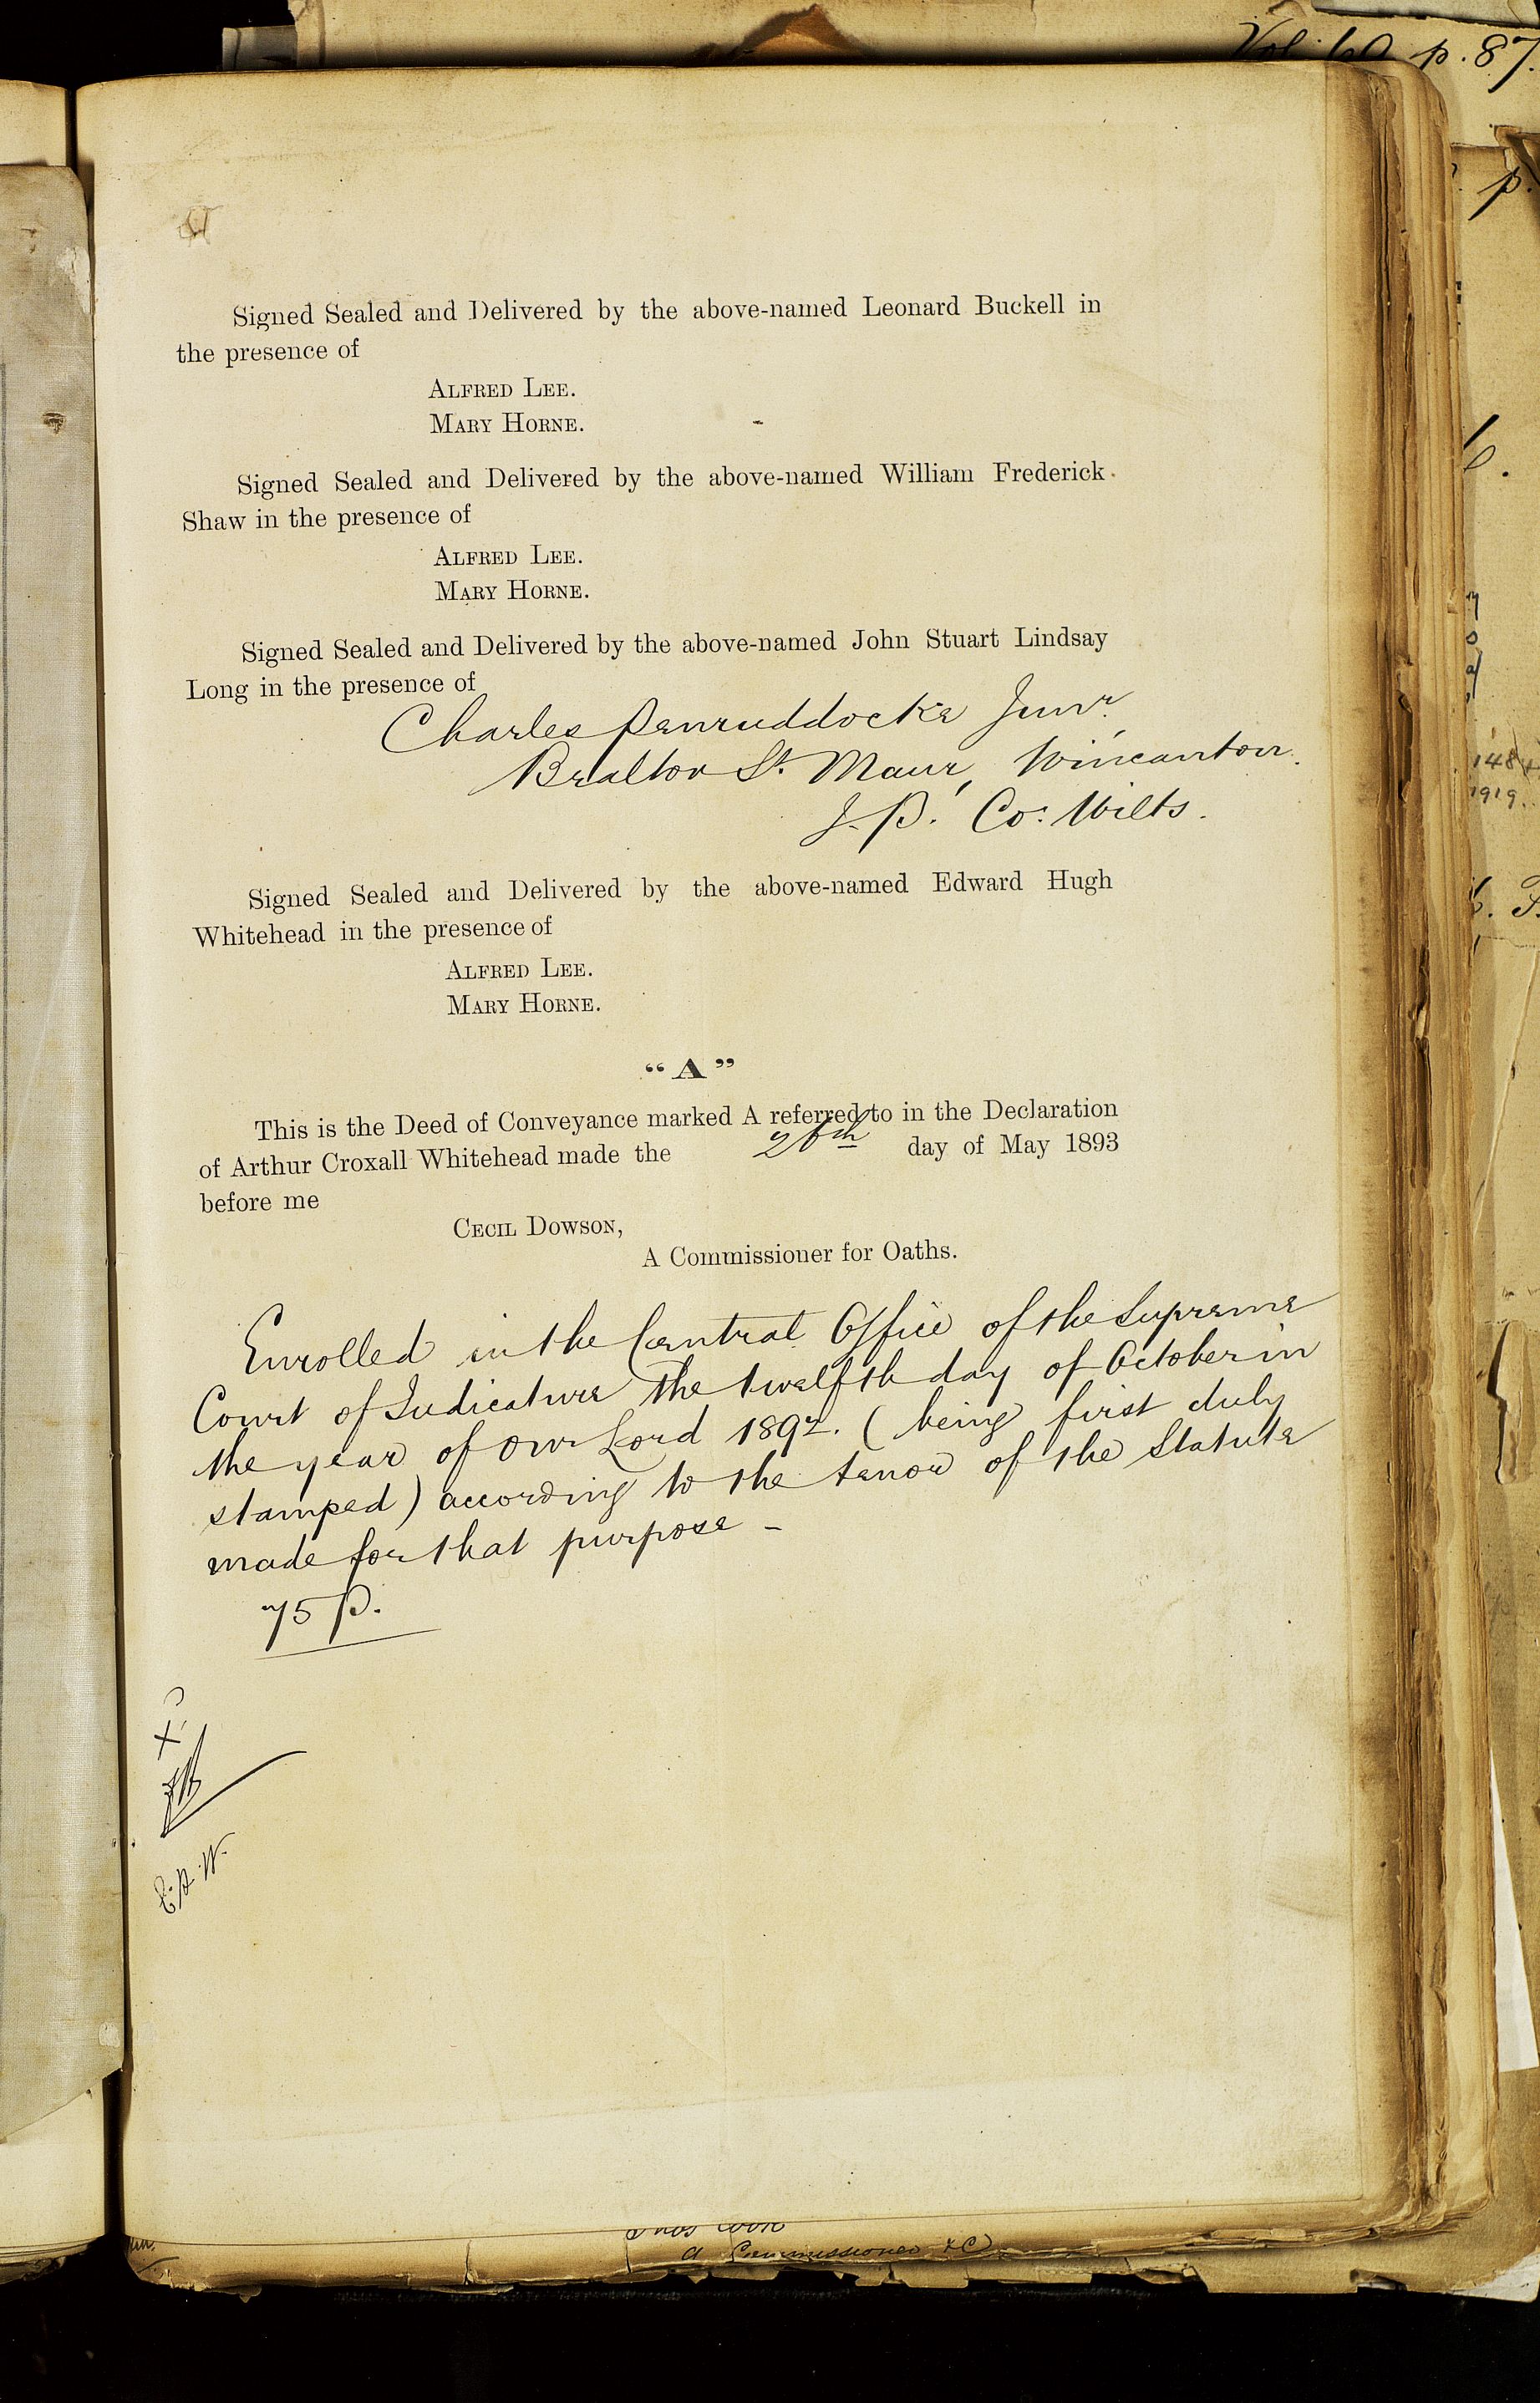 Vol: 60 p. 87.
Signed Sealed and Delivered by the above-named Leonard Buckell in
the presence of
ALFRED LEE.
MARY HORNE.
Signed Sealed and Delivered by the above-named William Frederick
Shaw in the presence of
ALFRED LEE.
MARY HORNE.
Signed Sealed and Delivered by the above-named John Stuart Lindsay
Long in the presence of
Charles Penruddocke Junr.
Bratton St. Maur, Wincanton.
J.P. Co: Wilts.
Signed Sealed and Delivered by the above-named Edward Hugh
Whitehead in the presence of
ALFRED LEE.
MARY HORNE.
“A”
This is the Deed of Conveyance marked A referred to in the Declaration
of Arthur Croxall Whitehead made the 26th day of May 1893
before me
CECIL DOWSON,
A Commissioner for Oaths.
Enrolled in the Central Office of the Supreme
Court of Judicature the twelfth day of October in
the year of our Lord 1892. (being first duly
stamped) according to the tenor of the Statute
made for that purpose -
75 P.
a Commissioner &c